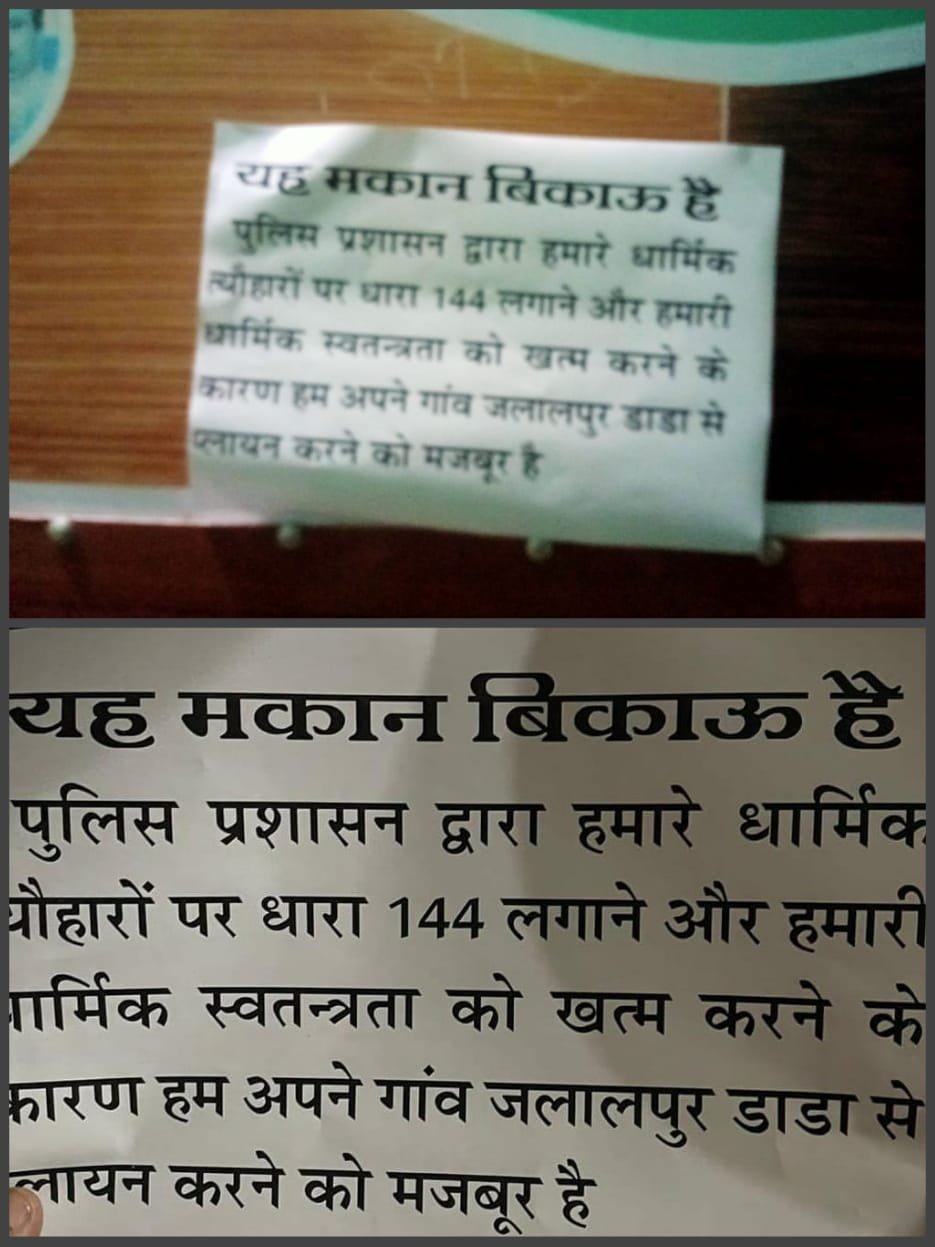 यह मकान बिकाऊ है
पुलिस प्रशासन द्वारा हमारे धार्मिक
त्यौहारों पर धारा 144 लगाने और हमारी
धार्मिक स्वतन्त्रता को खत्म करने के
कारण हम अपने गांव जलालपुर डाडा से
प्लायन करने को मजबूर है
यह मकान बिकाऊ है
पुलिस प्रशासन द्वारा हमारे धार्मिक
यौहारों पर धारा 144 लगाने और हमारी
ार्मिक स्वतन्त्रता को खत्म करने के
कारण हम अपने गांव जलालपुर डाडा से
लायन करने को मजबूर है